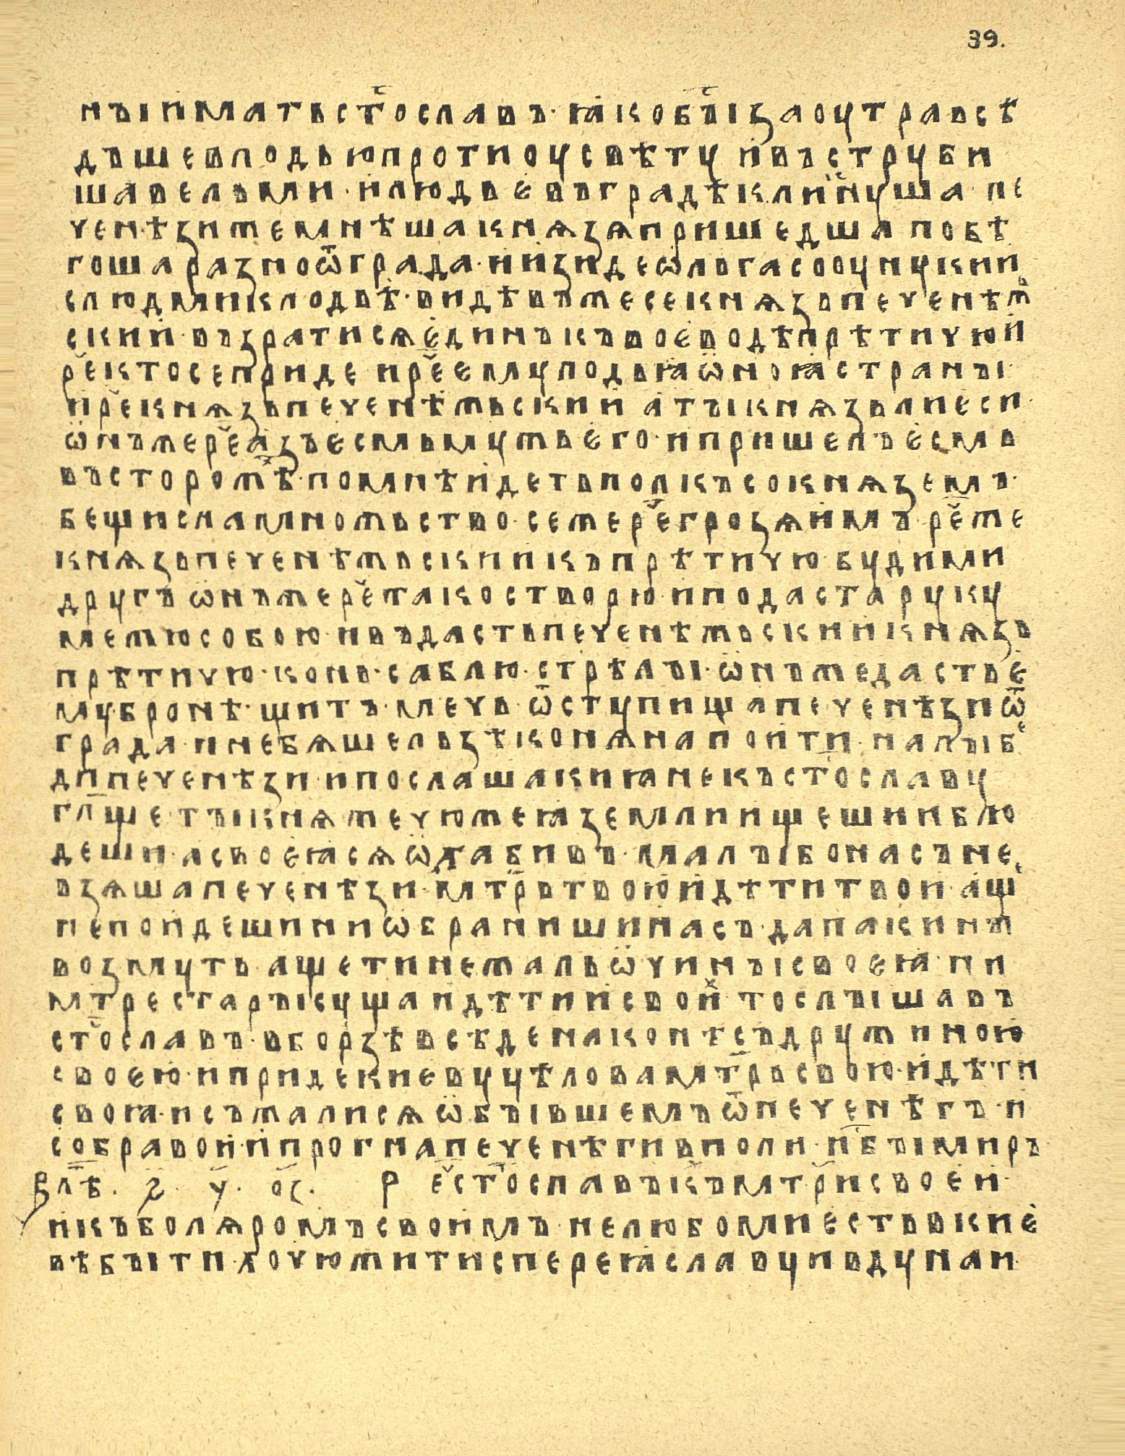 39.
нъıиматьст҃ославъ·ꙗкобъıзаоутравсѣ
дъшевлодьюпротиоусвѣту ивъструби
шавельми·илюдьевъградѣкликнуша·пе
ченѣзижемнѣшакнязяпришедша побѣ
гошаразноѿграда·иизидеѡльгасоонукии
слюдмиклодьѣ·видѣвъжесекнязьпеченѣж
скии·възратисяединъкъвоеводѣпрѣтичюи
реч҃ктосеприде ирч҃еемуподьꙗѡноꙗстранъı
ирч҃екнязьпеченѣжьскии атъıкнязьлиеси·
ѡнъжерч҃еазъесмьмужьего·ипришелъесмь
въсторожѣ·помнѣидетьполкъсокняземъ·
бещисламножьство·сежерч҃егрозяимъ рч҃еже
князьпеченѣжьскиикъпрѣтичю·будими
другъ ѡнъжерч҃етакостворю·иподастаруку
межюсобою·ивъдастьпеченѣжьскиикнязь
прѣтичю·конь·саблю·стрѣлъı·ѡнъжедастье
мубронѣ·щитъ·мечь·ѿступишапеченѣзиѿ
града·инебяшельзѣконянапоити·налъıбе
дипеченѣзи·ипослашакиꙗнекъст҃ославу
гл҃щетъıкняжечюжеꙗземлиищешииблю
деши·асвоеꙗсяѡхабивъ·малъıбонасъне
взяшапеченѣзи·мт҃рьтвоюидѣтитвои·ащ
непоидешиниѡбранишинасъ·дапакинъı
возмуть·ащетинежальѡчинъısвоеꙗ·ни
мт҃рестаръıсущаидѣтиисвоих·тослъıшавъ
ст҃ославъ·вборзѣвсѣденаконѣсъдружиною
своею·ипридекиевуцѣловамт҃рьсвою·идѣти
своꙗ·исъжалисяѡбъıвшемъѿпеченѣгъ·и
собравоиипрогнапеченѣгивполи·ибъıмиръ
Влѣ҃т·҂ѕ҃·у҃·о҃ѕ· Рч҃ест҃ославъкъмт҃рисвоеи·
икъболяромъсвоимъ·нелюбомиестьвкие
вѣбъıти·хочюжитисперeꙗславуивдунаи·